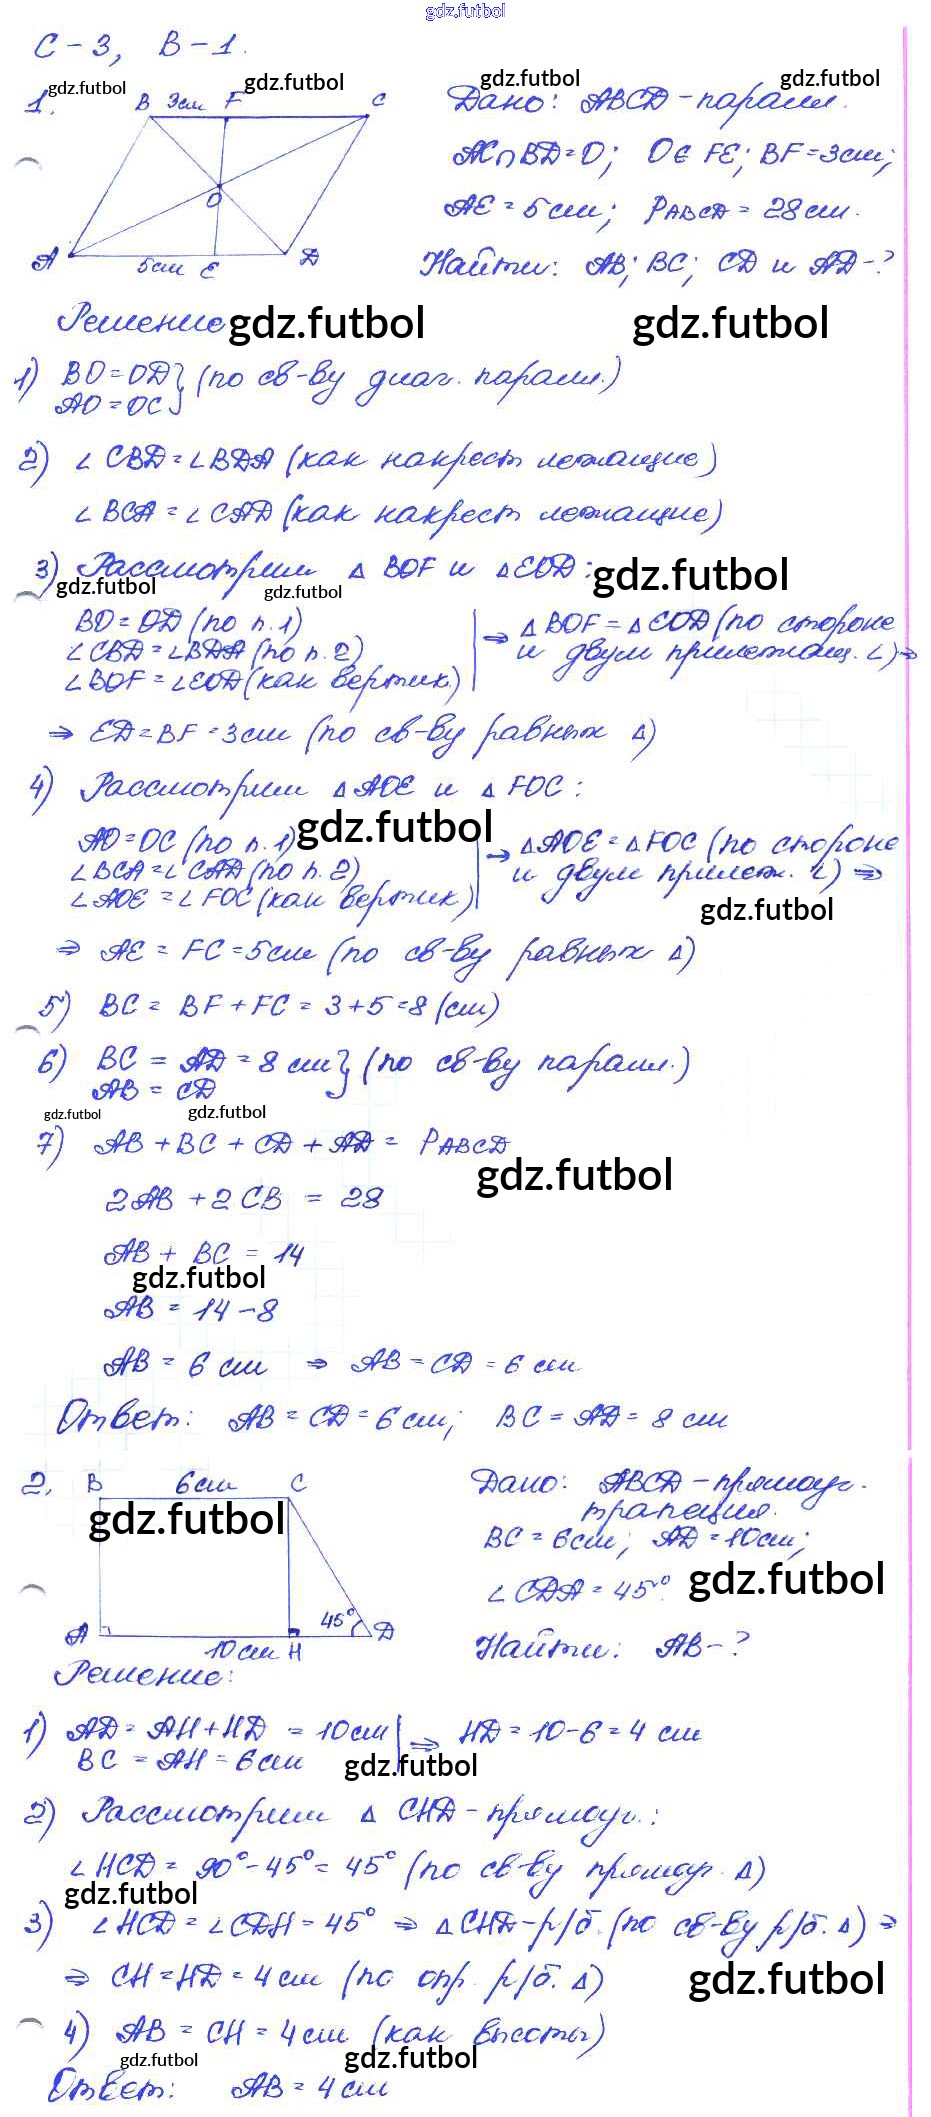 gdz.futbol
С-3, В-1.
gdz.futbol gdz.futbol gdz.futbol gdz.futbol
1. B 3см F C Дано: ABCD - паралл.
AC∩BD=O; O∈FE; BF=3см;
O AE=5см; PABCD=28см.
A 5см E D Найти: AB; BC; CD и AD-?
Решение gdz.futbol gdz.futbol
1) BO=OD} (по св-ву диаг. паралл.)
AO=OC
2) ∠CBD=∠BDA (как накрест лежащие)
∠BCA=∠CAD (как накрест лежащие)
3) Рассмотрим △BOF и △EOD: gdz.futbol
gdz.futbol gdz.futbol
BO=OD (по п.1) | ⇒ △BOF=△EOD (по стороне
∠CBD=∠BDA (по п.2) и двум прилежащ. ∠) ⇒
∠BOF=∠EOD (как вертик.)
⇒ ED=BF=3см (по св-ву равных △)
4) Рассмотрим △AOE и △FOC:
gdz.futbol
AO=OC (по п.1) | → △AOE=△FOC (по стороне
∠BCA=∠CAD (по п.2) и двум прилеж. ∠) ⇒
∠AOE=∠FOC (как вертик)
gdz.futbol
⇒ AE=FC=5см (по св-ву равных △)
5) BC=BF+FC=3+5=8 (см)
6) BC=AD=8см} (по св-ву паралл.)
AB=CD
gdz.futbol gdz.futbol
7) AB+BC+CD+AD=PABCD
gdz.futbol
2AB+2CB=28
AB+BC=14
gdz.futbol
AB=14-8
AB=6см ⇒ AB=CD=6см
Ответ: AB=CD=6см; BC=AD=8см
2. B 6см C Дано: ABCD - прямоуг.
трапеция.
gdz.futbol BC=6см; AD=10см;
∠CDA=45° gdz.futbol
A 10см H 45° D Найти: AB-?
Решение:
1) AD=AH+HD=10см | ⇒ HD=10-6=4см
BC=AH=6см gdz.futbol
2) Рассмотрим △CHD - прямоуг.:
∠HCD=90°-45°=45° (по св-ву прямоуг. △)
gdz.futbol
3) ∠HCD=∠CDH=45° ⇒ △CHD-р/б. (по св-ву р/б. △) ⇒
⇒ CH=HD=4см (по опр. р/б. △) gdz.futbol
4) AB=CH=4см (как высоты)
gdz.futbol gdz.futbol
Ответ: AB=4см